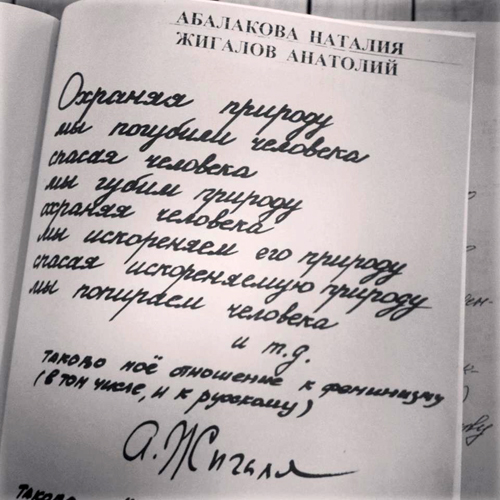 АБАЛАКОВА НАТАЛИЯ
ЖИГАЛОВ АНАТОЛИЙ
Охраняя природу
мы погубили человека
спасая человека
мы губим природу
охраняя человека
мы искореняем его природу
спасая искореняемую природу
мы попираем человека
и т.д.
таково моё отношение к феминизму
(в том числе, и к русскому)
А. Жигалл